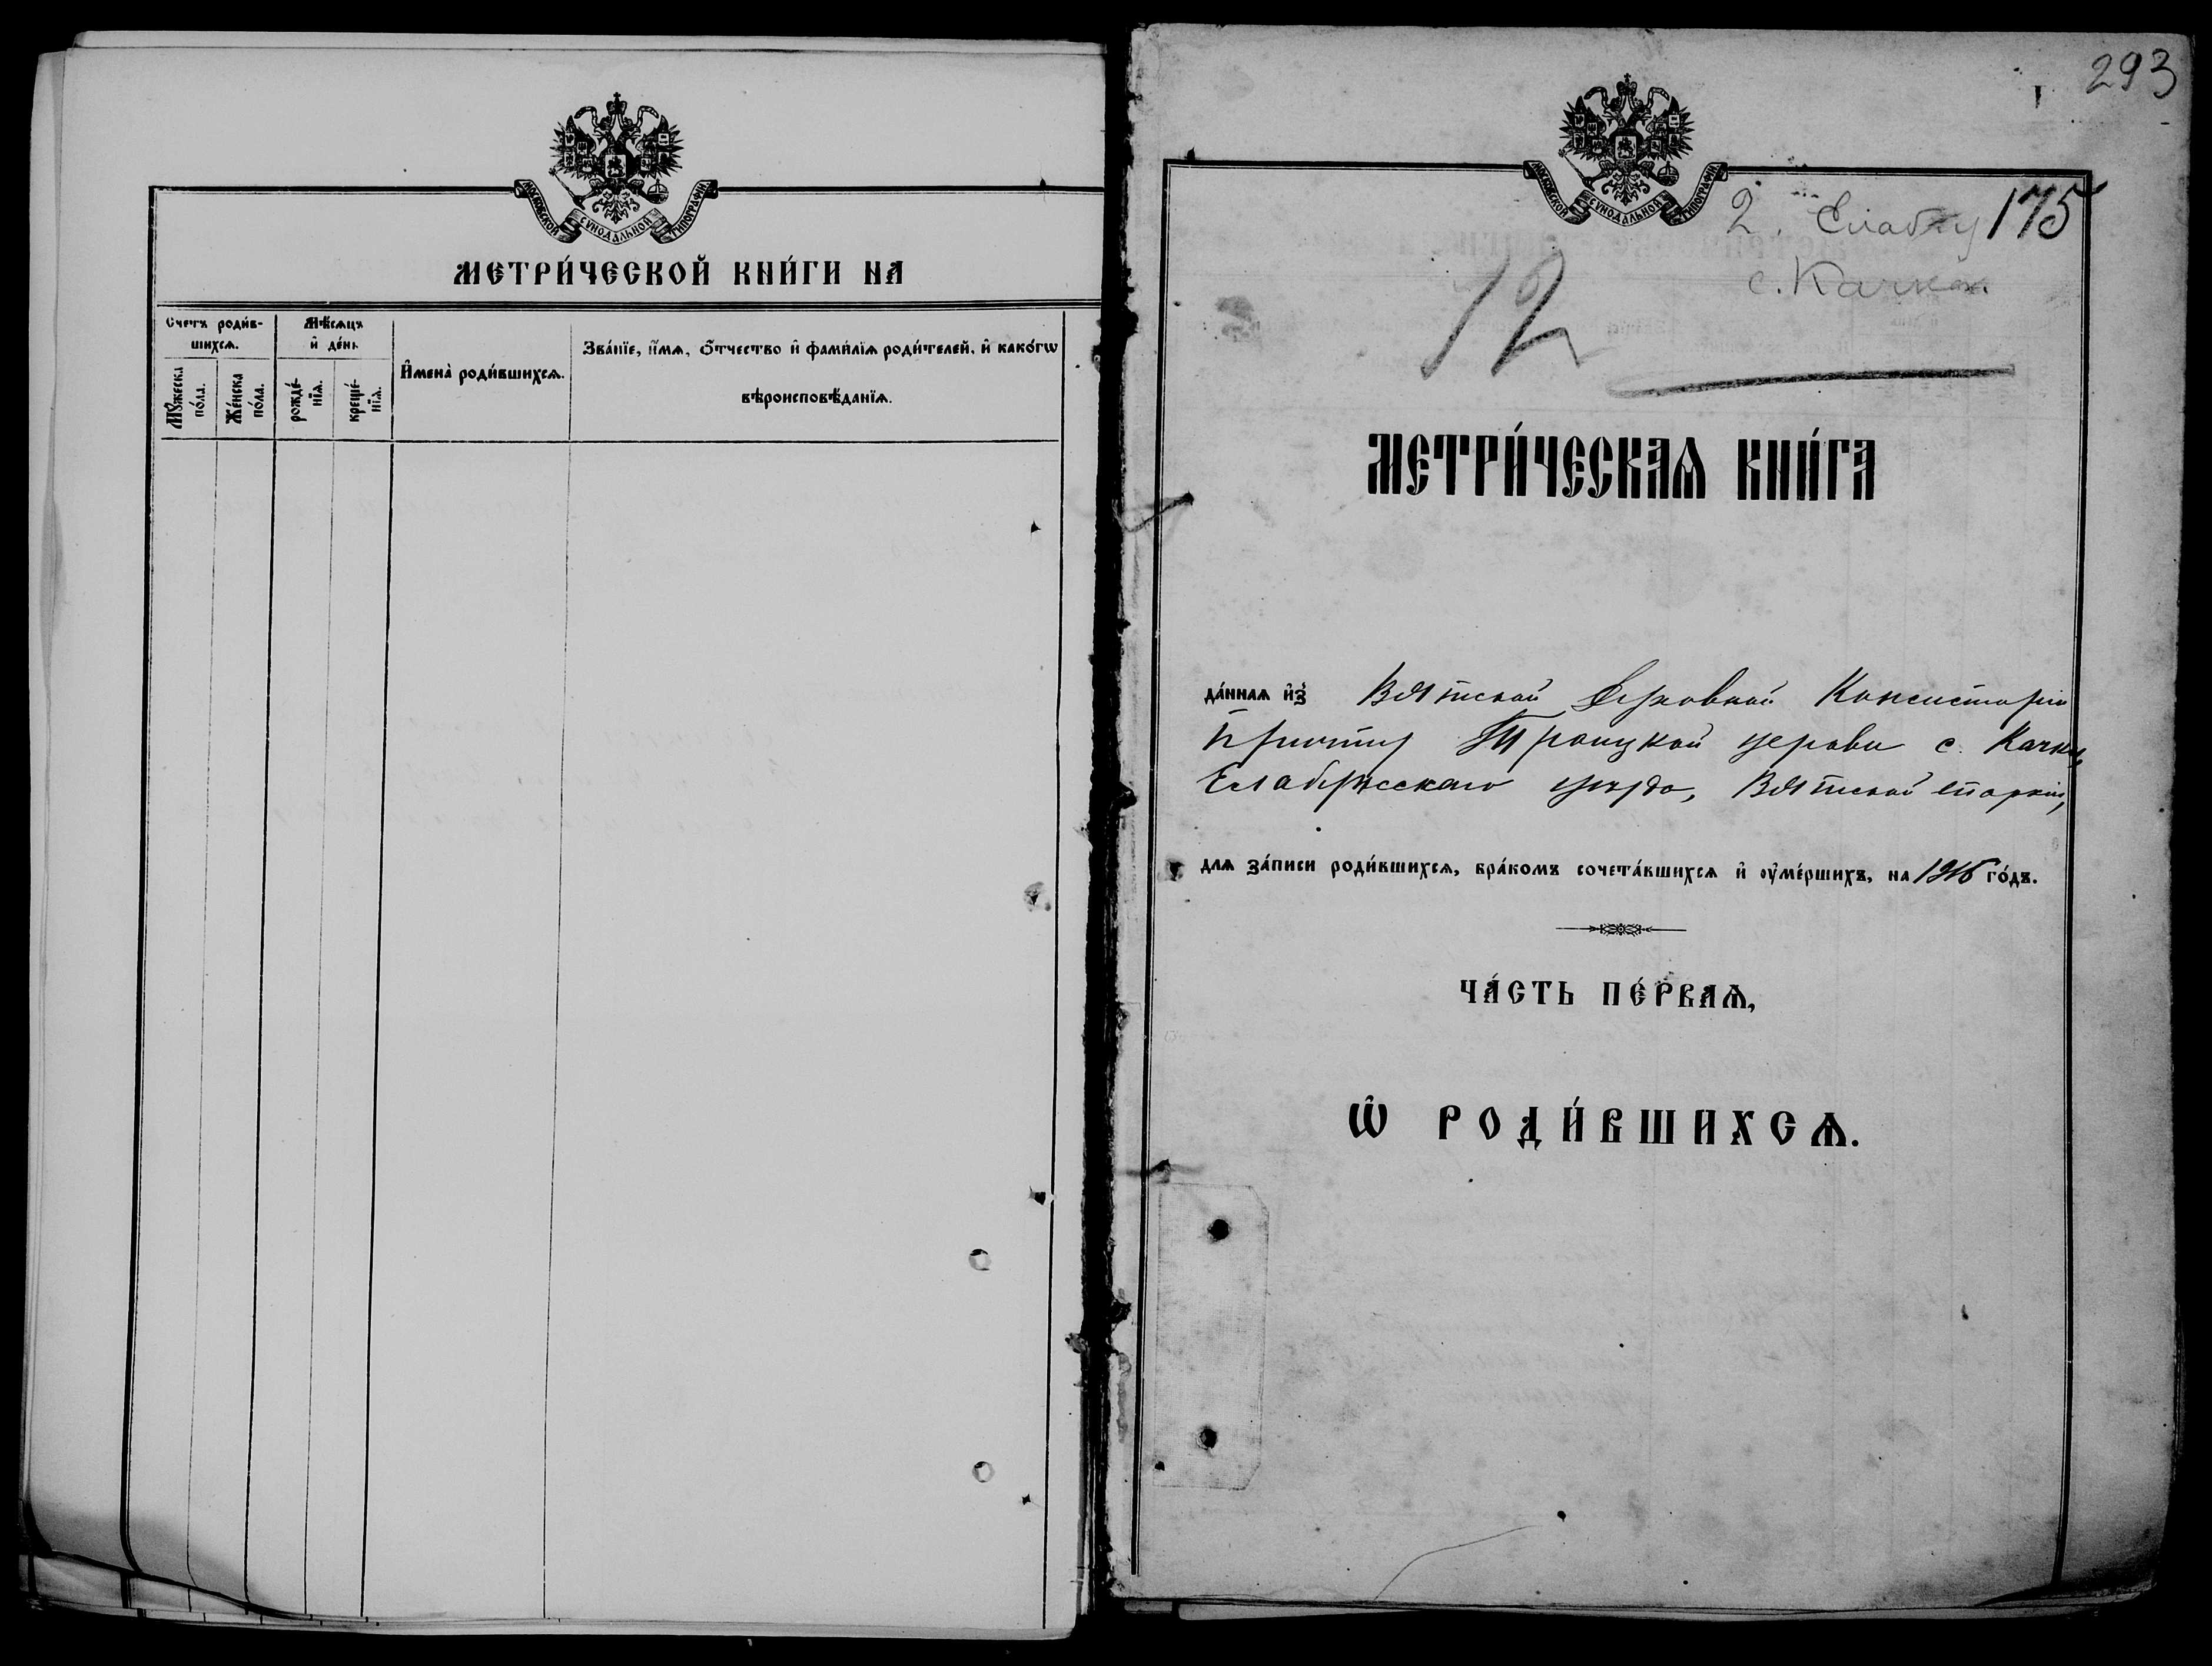 МОСКОВСКОЙ СУНОДАЛЬНОЙ ТИПОГРАФІИ
МЕТРИ́ЧЕСКОЙ КНИ́ГИ НА
Счетъ роди́в-
шихсѧ.
Мѣсѧцъ
и҆ де́нь
И҆мена̀ роди́вшихсѧ.
Зва́нїе, и҆́мѧ, ѻ҆́тчество и҆ фами́лїѧ роди́телей, и҆ како́гѡ
вѣроисповѣ́данїѧ.
Мꙋ́жеска
по́ла.
Же́нска
по́ла.
рожде́-
нїѧ.
креще́-
нїѧ.
293
МОСКОВСКОЙ СУНОДАЛЬНОЙ ТИПОГРАФІИ
2. 175
с. Качка
12
МЕТРИ́ЧЕСКАѦ КНИ́ГА
да́ннаѧ и҆з̾ Вятской Духовной Консисторіи
Причту Троицкой церкви с. Качки,
Елабужскаго уѣзда, Вятской епархіи,
длѧ за́писи роди́вшихсѧ, бра́комъ сочета́вшихсѧ и҆ ᲂу҆ме́ршихъ, на 1916 го́дъ.
ЧА́СТЬ ПЕ́РВАѦ,
Ѡ҆ РОДИ́ВШИХСѦ.